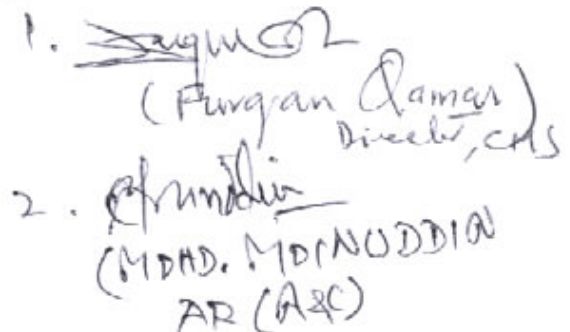 1.
(Furqan Qamar)
Director, CMS
2.
(MOHD. MOINUDDIN
AR (A&C)